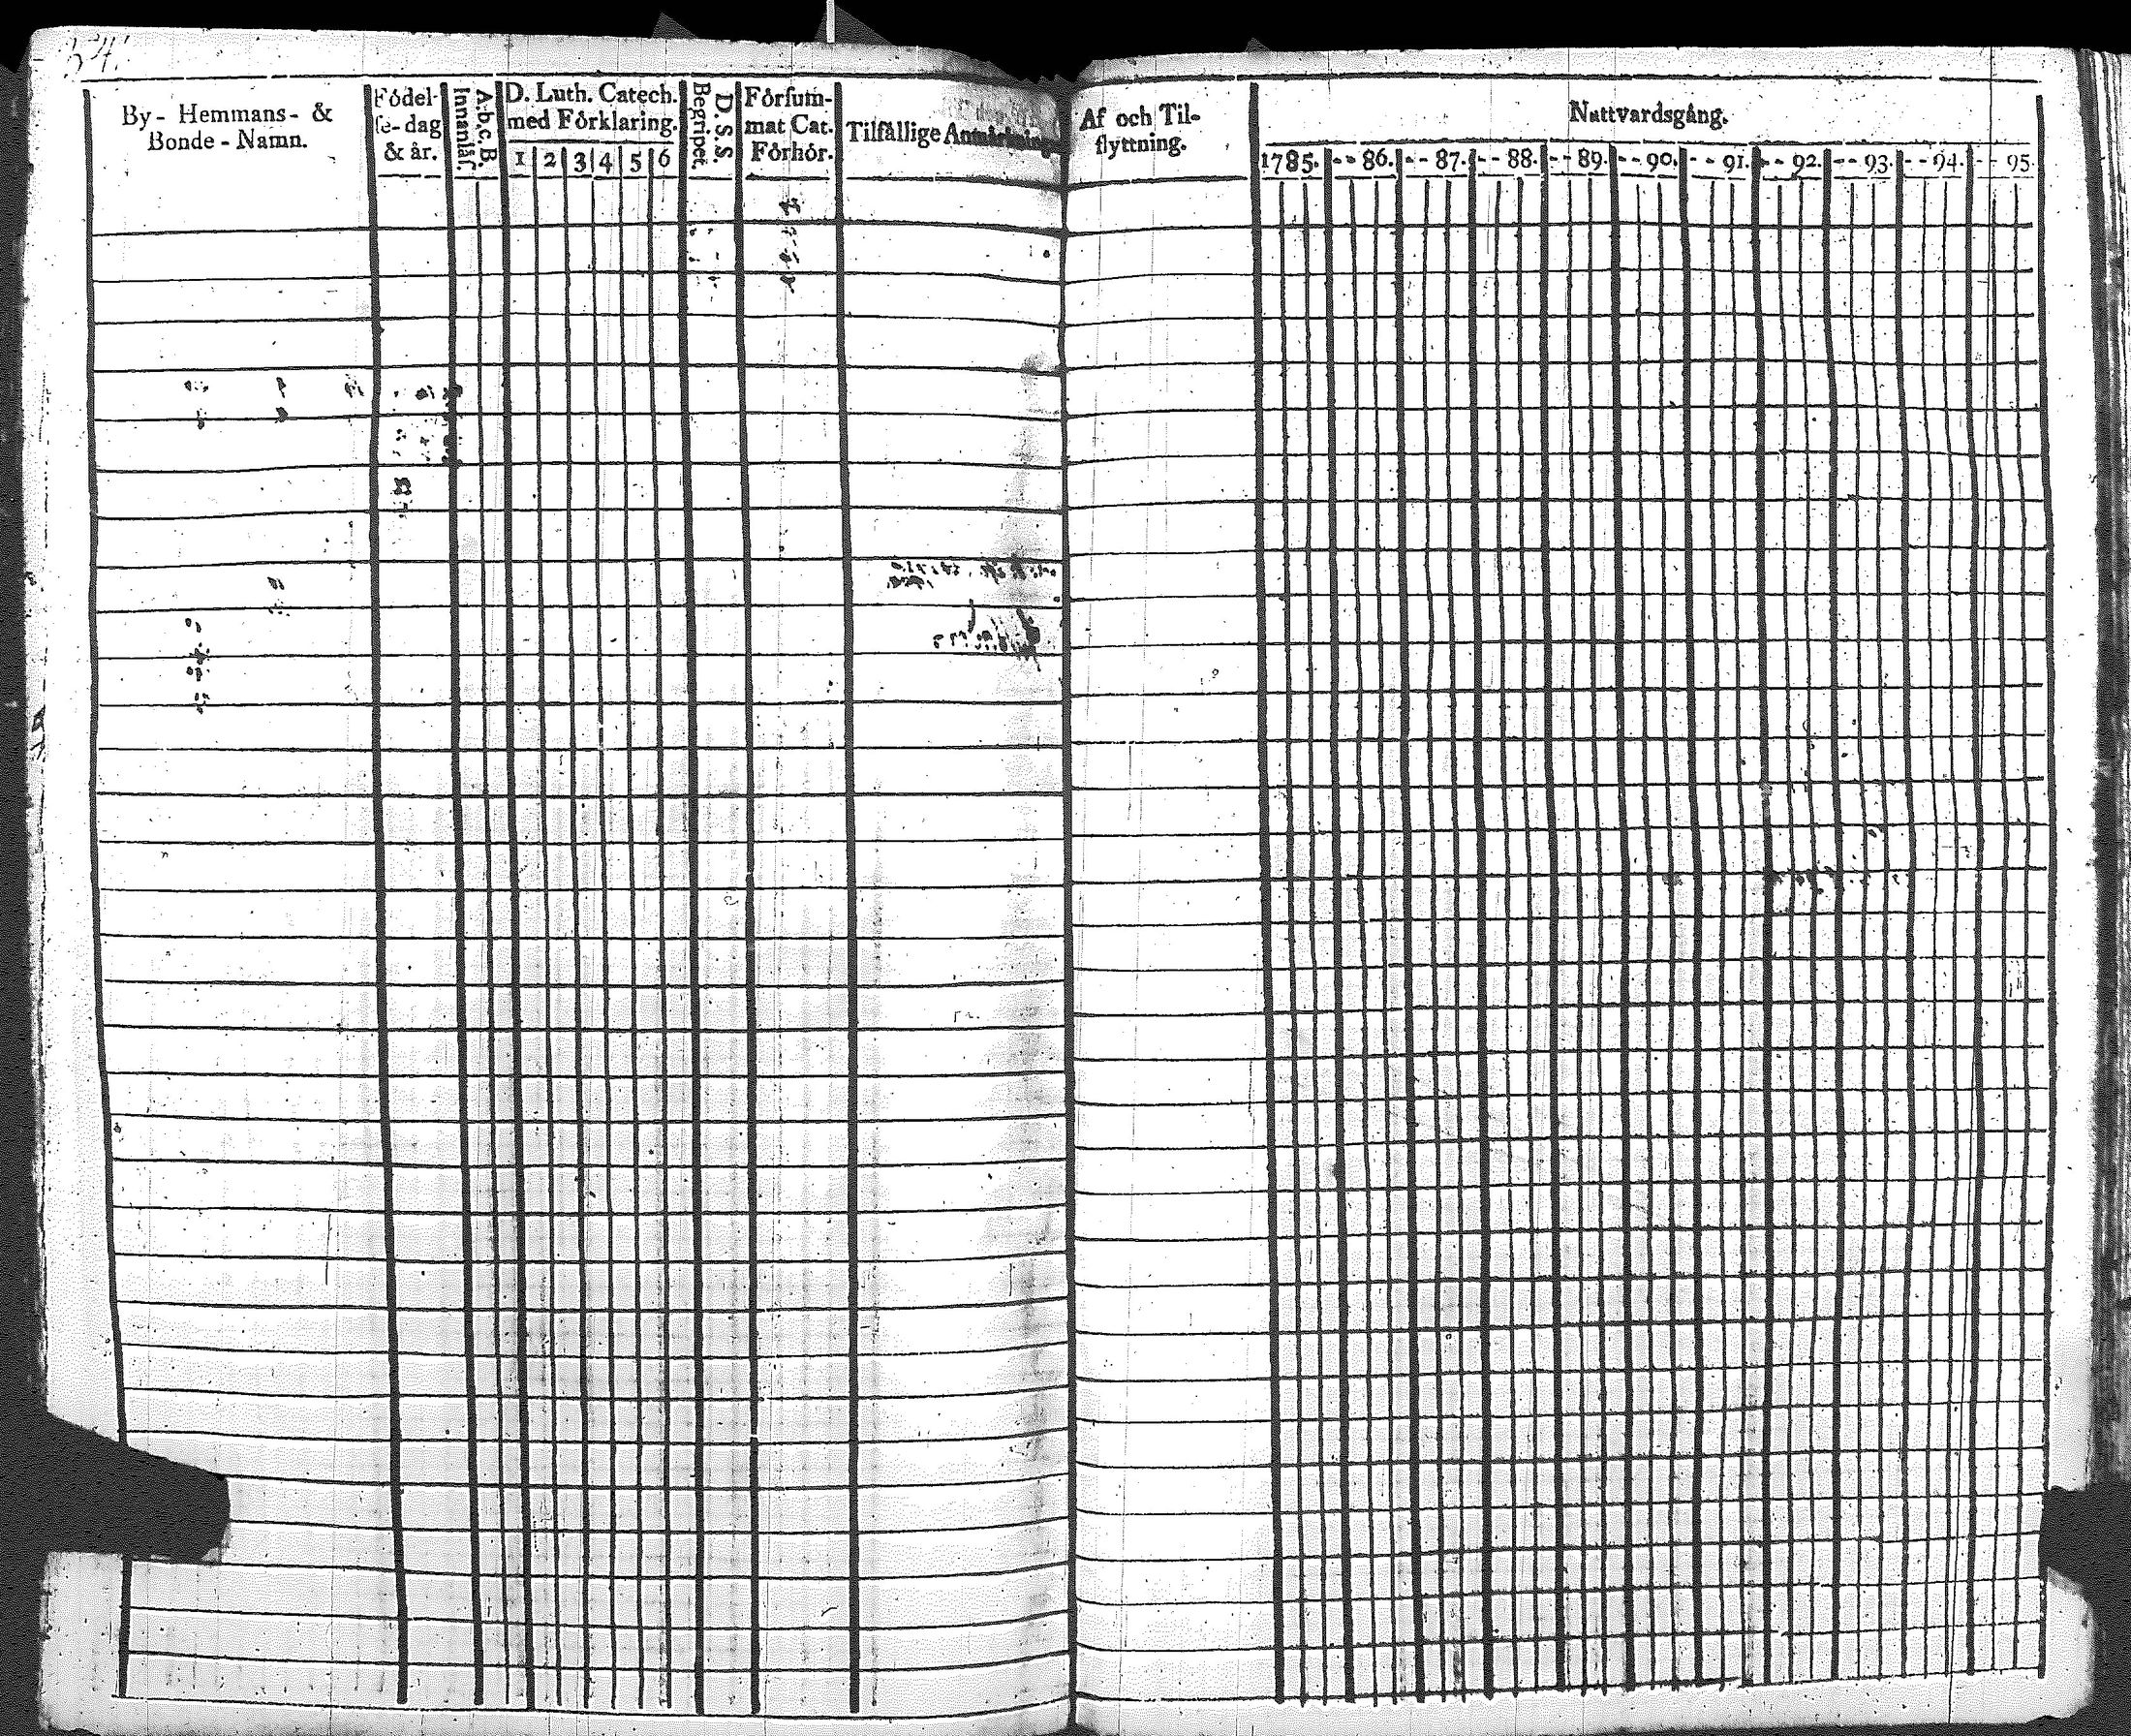 By- Hemmans- &
Bonde-Namn.
Fódel-
se-dag
& år.
A.b.c.B.
Innanläs.
D. Luth. Catech.
med Fórklaring.
1 2 3 4 5 6
D. S. S.
Begripet.
Fórsum-
mat Cat.
Fórhór.
Tilfällige Anmärkning.
Af och Til-
flyttning.
Nattvardsgång.
1785. - - 86. - - 87. - - 88. - - 89. - - 90. - - 91. - - 92. - - 93. - - 94. - - 95.